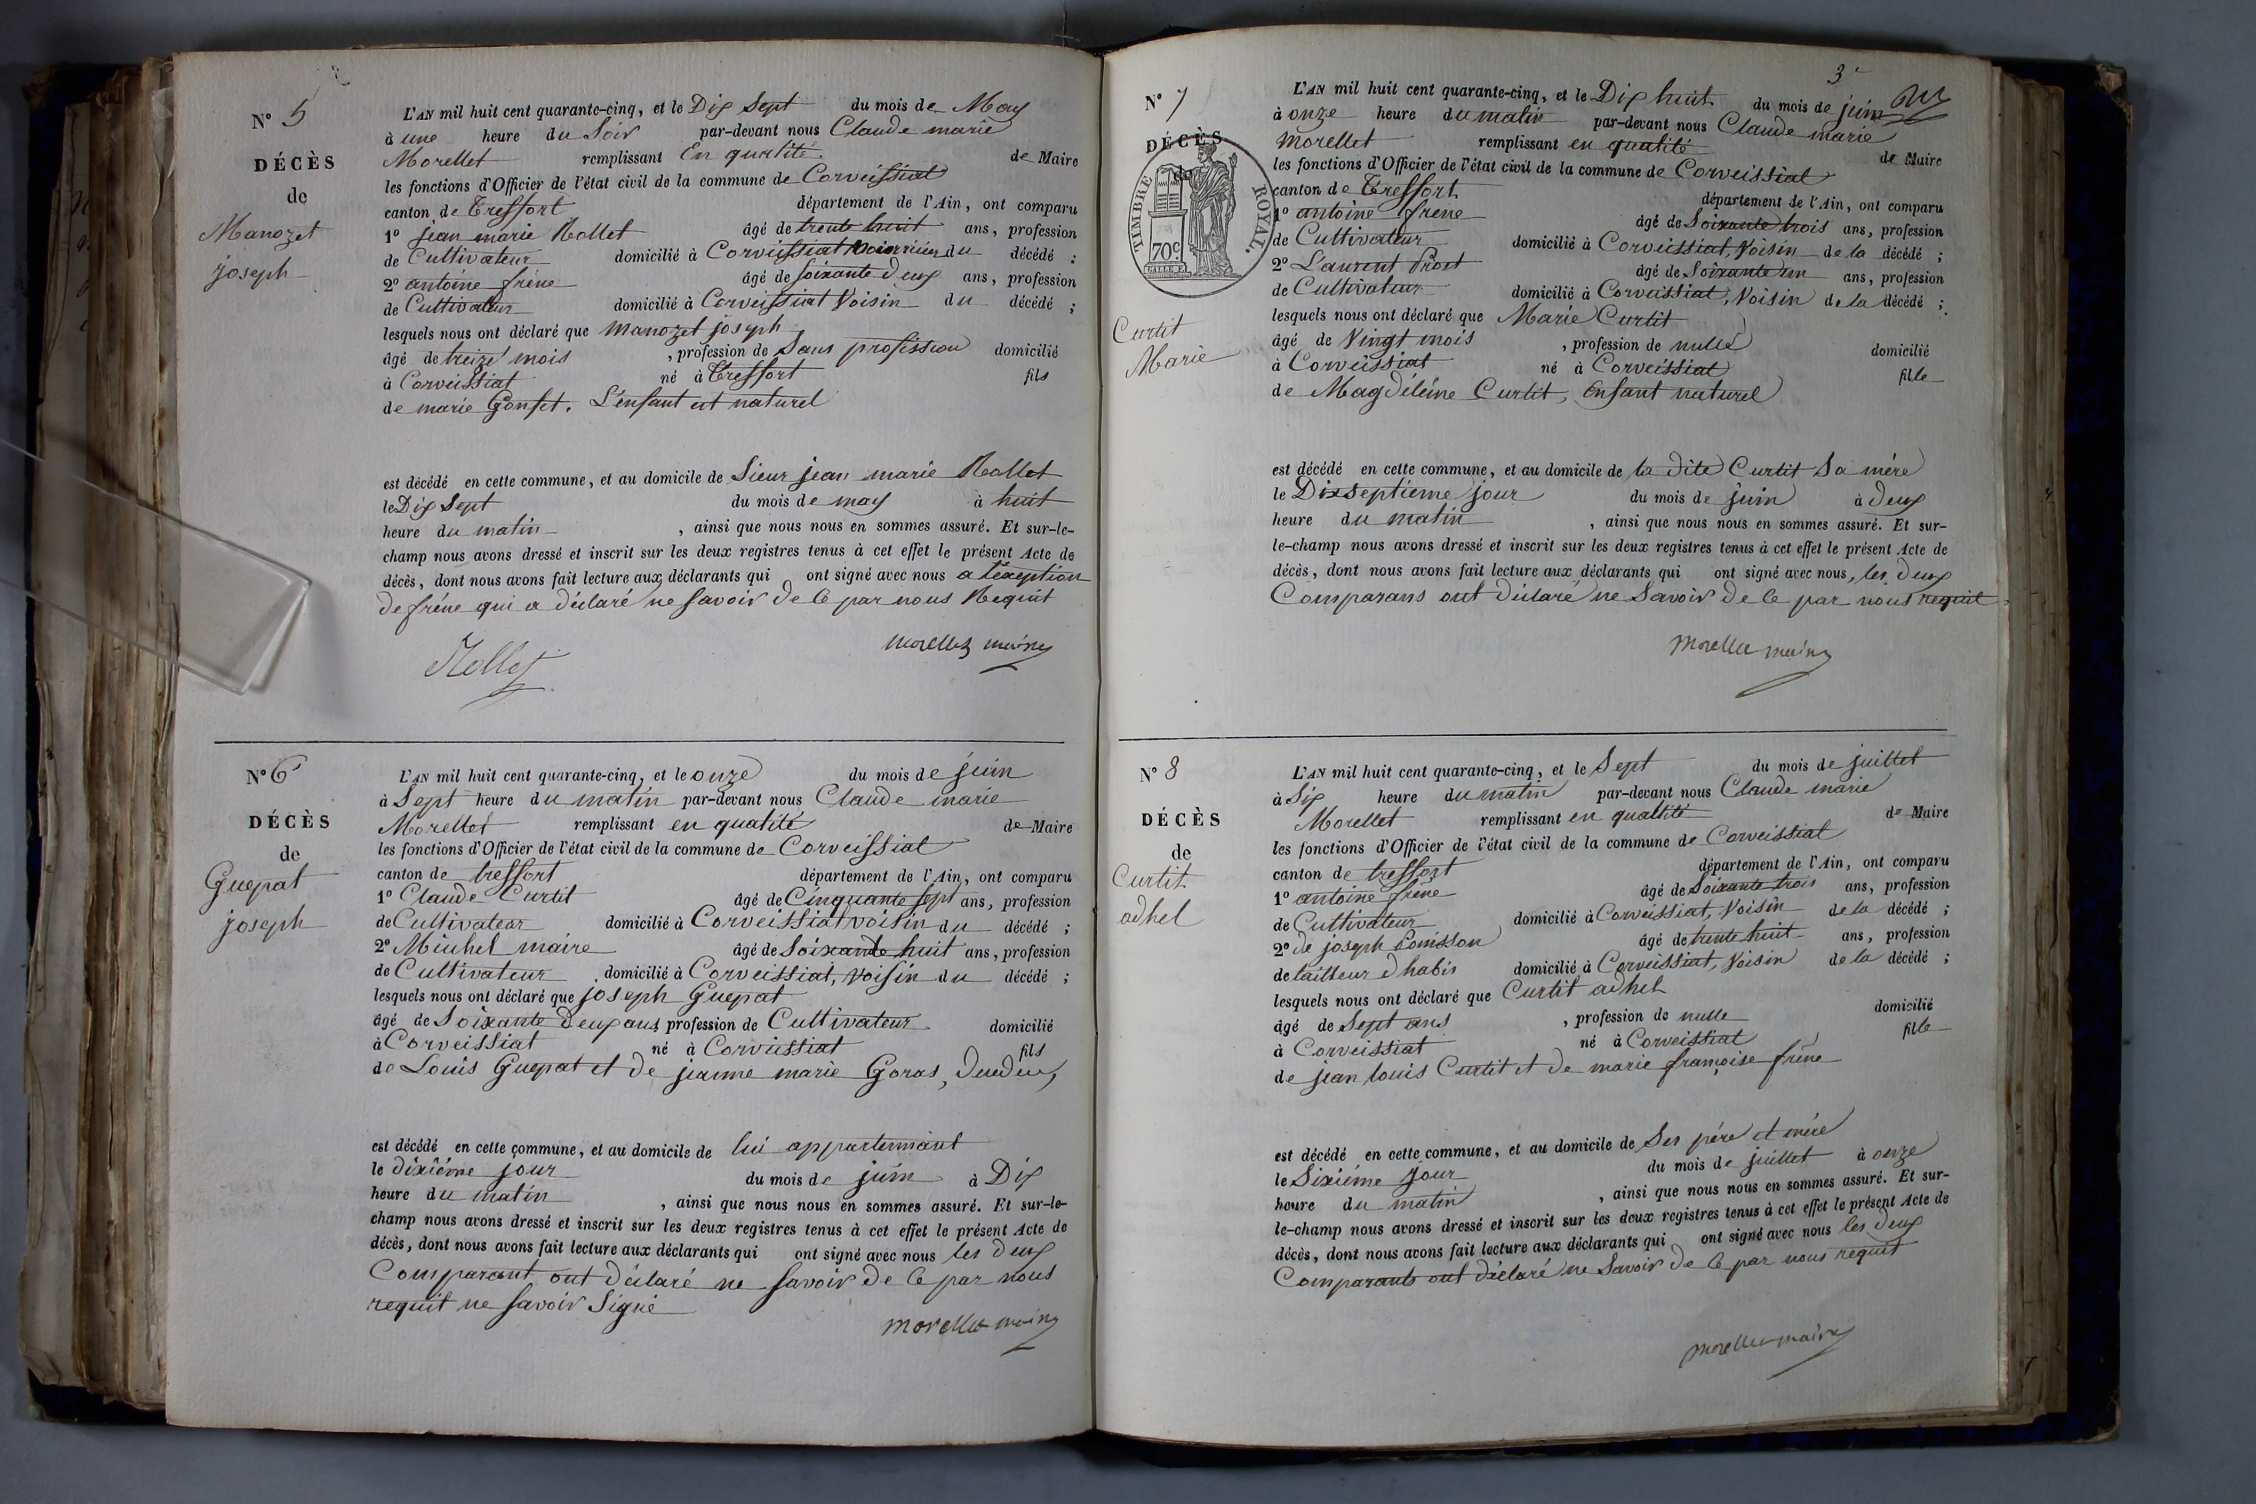 N° 5
DÉCÈS
de
Manozet
joseph
L'AN mil huit cent quarante-cinq, et le Dix Sept du mois de May
à une heure du Soir par-devant nous Claude marie
Morellet remplissant En qualité de Maire
les fonctions d'Officier de l'état civil de la commune de Corveissiat
canton de Treffort département de l'Ain, ont comparu
1° jean marie Rollet âgé de trente huit ans, profession
de Cultivateur domicilié à Corveissiat du décédé ;
2° antoine frêne âgé de soixante deux ans, profession
de Cultivateur domicilié à Corveissiat Voisin du décédé ;
lesquels nous ont déclaré que Manozet joseph
âgé de treize mois , profession de Sans profission domicilié
à Corveissiat né à Treffort fils
de marie Gonset. L'enfant est naturel
est décédé en cette commune, et au domicile de Sieur jean marie Rollet
le Dix Sept du mois de may à huit
heure du matin , ainsi que nous nous en sommes assuré. Et sur-le-
champ nous avons dressé et inscrit sur les deux registres tenus à cet effet le présent Acte de
décès, dont nous avons fait lecture aux déclarants qui ont signé avec nous a l'éxeption
de frêne qui a déclaré ne savoir de ce par nous Requit
Rollet morellet maire
N° 6
DÉCÈS
de
Guepat
joseph
L'AN mil huit cent quarante-cinq, et le onze du mois de juin
à Sept heure du matin par-devant nous Claude marie
Morellet remplissant en qualité de Maire
les fonctions d'Officier de l'état civil de la commune de Corveissiat
canton de treffort département de l'Ain, ont comparu
1° Claude Curtit âgé de Cinquante sept ans, profession
de Cultivateur domicilié à Corveissiat voisin du décédé ;
2° Miuhel maire âgé de Soixante huit ans, profession
de Cultivateur domicilié à Corveissiat, voisin du décédé ;
lesquels nous ont déclaré que joseph Guepat
âgé de Soixante deux ans profession de Cultivateur domicilié
à Corveissiat né à Corveissiat fils
de Louis Guepat et de jeanne marie Goras,
est décédé en cette commune, et au domicile de lui appartenant
le dixième jour du mois de juin à Dix
heure du matin , ainsi que nous nous en sommes assuré. Et sur-le-
champ nous avons dressé et inscrit sur les deux registres tenus à cet effet le présent Acte de
décès, dont nous avons fait lecture aux déclarants qui ont signé avec nous les deux
Comparant ont déclaré ne savoir de ce par nous
requit ne savoir Signé
morellet maire
3
N° 7
DÉCÈS
de
TIMBRE ROYAL
70 c.
Curtit
Marie
L'AN mil huit cent quarante-cinq, et le Dix huit du mois de juin
à onze heure du matin par-devant nous Claude marie
Morellet remplissant en qualité de Maire
les fonctions d'Officier de l'état civil de la commune de Corveissiat
canton de Treffort département de l'Ain, ont comparu
1° antoine frene âgé de Soixante trois ans, profession
de Cultivateur domicilié à Corveissiat, Voisin de la décédé ;
2° Laurent Prost âgé de Soixante un ans, profession
de Cultivateur domicilié à Corveissiat, Voisin de la décédé ;
lesquels nous ont déclaré que Marie Curtit
âgé de Vingt mois , profession de nulle domicilié
à Corveissiat né à Corveissiat fille
de Magdéléine Curtit, Enfant naturel
est décédé en cette commune, et au domicile de la dite Curtit Sa mére
le Dixseptieme jour du mois de juin à deux
heure du matin , ainsi que nous nous en sommes assuré. Et sur-
le-champ nous avons dressé et inscrit sur les deux registres tenus à cet effet le présent Acte de
décès, dont nous avons fait lecture aux déclarants qui ont signé avec nous, les deux
Comparans ont déclaré ne Savoir de ce par nous requit
morellet maire
N° 8
DÉCÈS
de
Curtit
adhel
L'AN mil huit cent quarante-cinq, et le Sept du mois de juillet
à Six heure du matin par-devant nous Claude marie
Morellet remplissant en qualité de Maire
les fonctions d'Officier de l'état civil de la commune de Corveissiat
canton de treffort département de l'Ain, ont comparu
1° antoine frêne âgé de Soixante trois ans, profession
de Cultivateur domicilié à Corveissiat, Voisin de la décédé ;
2° de joseph âgé de trente huit ans, profession
de tailleur d'habis domicilié à Corveissiat, Voisin de la décédé ;
lesquels nous ont déclaré que Curtit adhel
âgé de Sept ans , profession de nulle domicilié
à Corveissiat né à Corveissiat fille
de jean louis Curtit et de marie françoise frêne
est décédé en cette commune, et au domicile de Ses pére et mére
le Sixiéme jour du mois de juillet à onze
heure du matin , ainsi que nous nous en sommes assuré. Et sur-
le-champ nous avons dressé et inscrit sur les deux registres tenus à cet effet le présent Acte de
décès, dont nous avons fait lecture aux déclarants qui ont signé avec nous les deux
Comparants ont déclaré ne Savoir de ce par nous requit
morellet maire